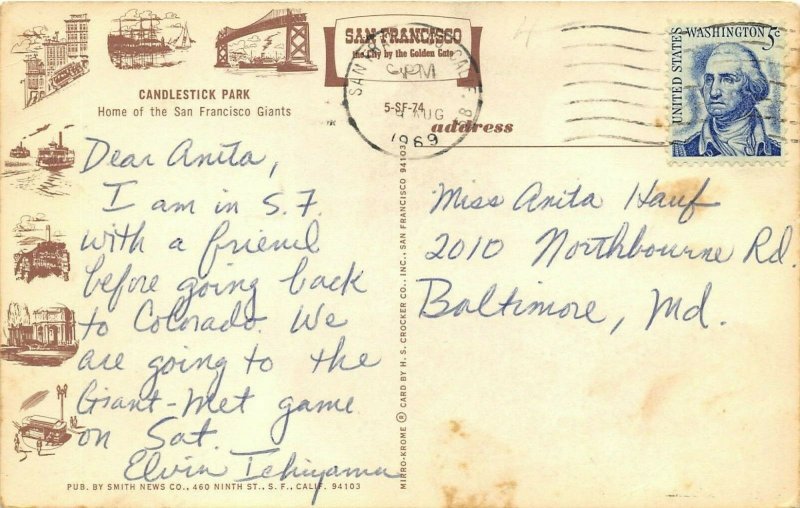 SAN FRANCISCO
the City by the Golden Gate
CANDLESTICK PARK
Home of the San Francisco Giants
5-SF-74
Dear Anita,
I am in S.F.
with a friend
before going back
to Colorado. We
are going to the
Giant-Met game
on Sat.
Elvin Ichiyama
PUB. BY SMITH NEWS CO., 460 NINTH ST., S. F., CALIF. 94103
MIRRO-KROME ® CARD BY H. S. CROCKER CO., INC., SAN FRANCISCO 94103
SAN CALIF
PM
AUG
1969
UNITED STATES
WASHINGTON 5c
address
Miss Anita Hauf
2010 Northbourne Rd.
Baltimore, Md.